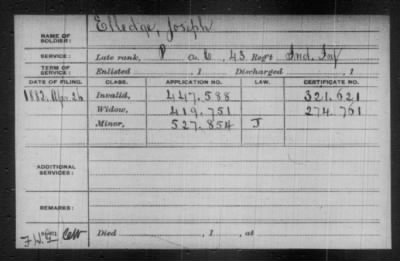 NAME OF SOLDIER: Elledge, Joseph
SERVICE: Late rank, P Co. C, 43 Reg't Ind. Inf
TERM OF SERVICE: Enlisted , 1 Discharged , 1
DATE OF FILING. CLASS. APPLICATION NO. LAW. CERTIFICATE NO.
1882, Apr. 26 Invalid, 447.588 321.621
Widow, 419.751 274.761
Minor, 527.854 J
ADDITIONAL SERVICES:
REMARKS:
Died , 1 , at